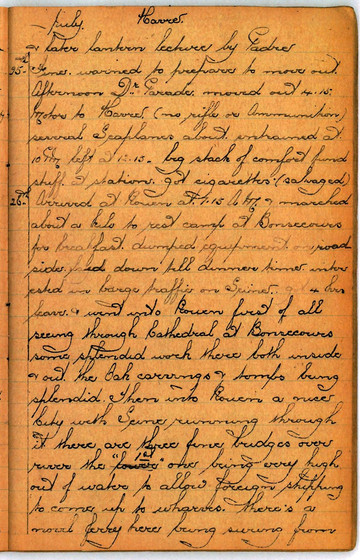 July. Havre.
& later lantern lecture by Padre
25th Fine. warned to prepare to move out.
Afternoon Dr. Parade. moved out 4.15.
Motor to Havre. (no rifles or Ammunition)
several Seaplanes about. entrained at
10 left at 12.15. big stack of comfort fund
stuff at station. got cigarettes. (salvaged)
26th Arrived at Rouen at 7.15 & marched
about a kilo to rest camp at Bonsecours
for breakfast. dumped equipment on road
side. down till dinner time. inter
ested in barge traffic on Seine. got 4 hrs
leave. & went into Rouen first of all
seeing through Cathedral at Bonsecours
some splendid work there both inside
& out. the Oak carvings & tombs being
splendid. Then into Rouen a nice
City with Seine running through
it there are three fine bridges over
river the "1st" one being very high
out of water to allow foreign shipping
to come up to wharves. there's a
novel ferry here being swung from